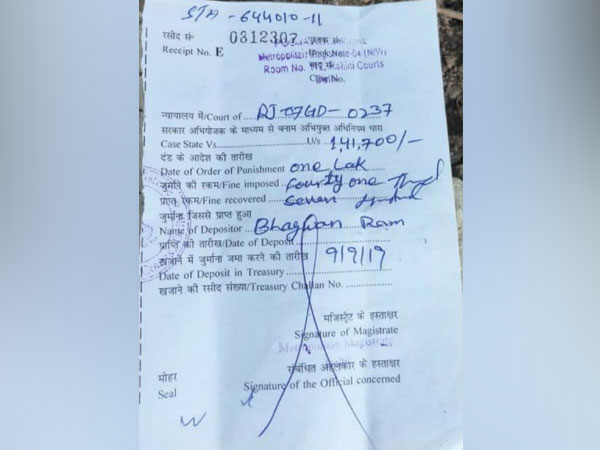 STA - 644010-11
रसीद सं॰
Receipt No. E 0312307
Metropolitan Magistrate-04 (N/W)
Room No. 112, Rohini Courts
Delhi
न्यायालय में/Court of RJ-07GD-0237
सरकार अभियोजक के माध्यम से बनाम अभियुक्त अधिनियम धारा
Case State Vs. U/s 1,41,700/-
दंड के आदेश की तारीख
Date of Order of Punishment one Lak
जुर्माने की रकम/Fine imposed fourty one
प्राप्त रकम/Fine recovered seven
जुर्माना जिससे प्राप्त हुआ
Name of Depositor Bhagwan Ram
प्राप्ति की तारीख/Date of Deposit
खजाने में जुर्माना जमा करने की तारीख 9/9/19
Date of Deposit in Treasury
खजाने की रसीद संख्या/Treasury Challan No.
मजिस्ट्रेट के हस्ताक्षर
Signature of Magistrate
Metropolitan Magistrate
संबंधित अहलकार के हस्ताक्षर
मोहर
Seal Signature of the Official concerned